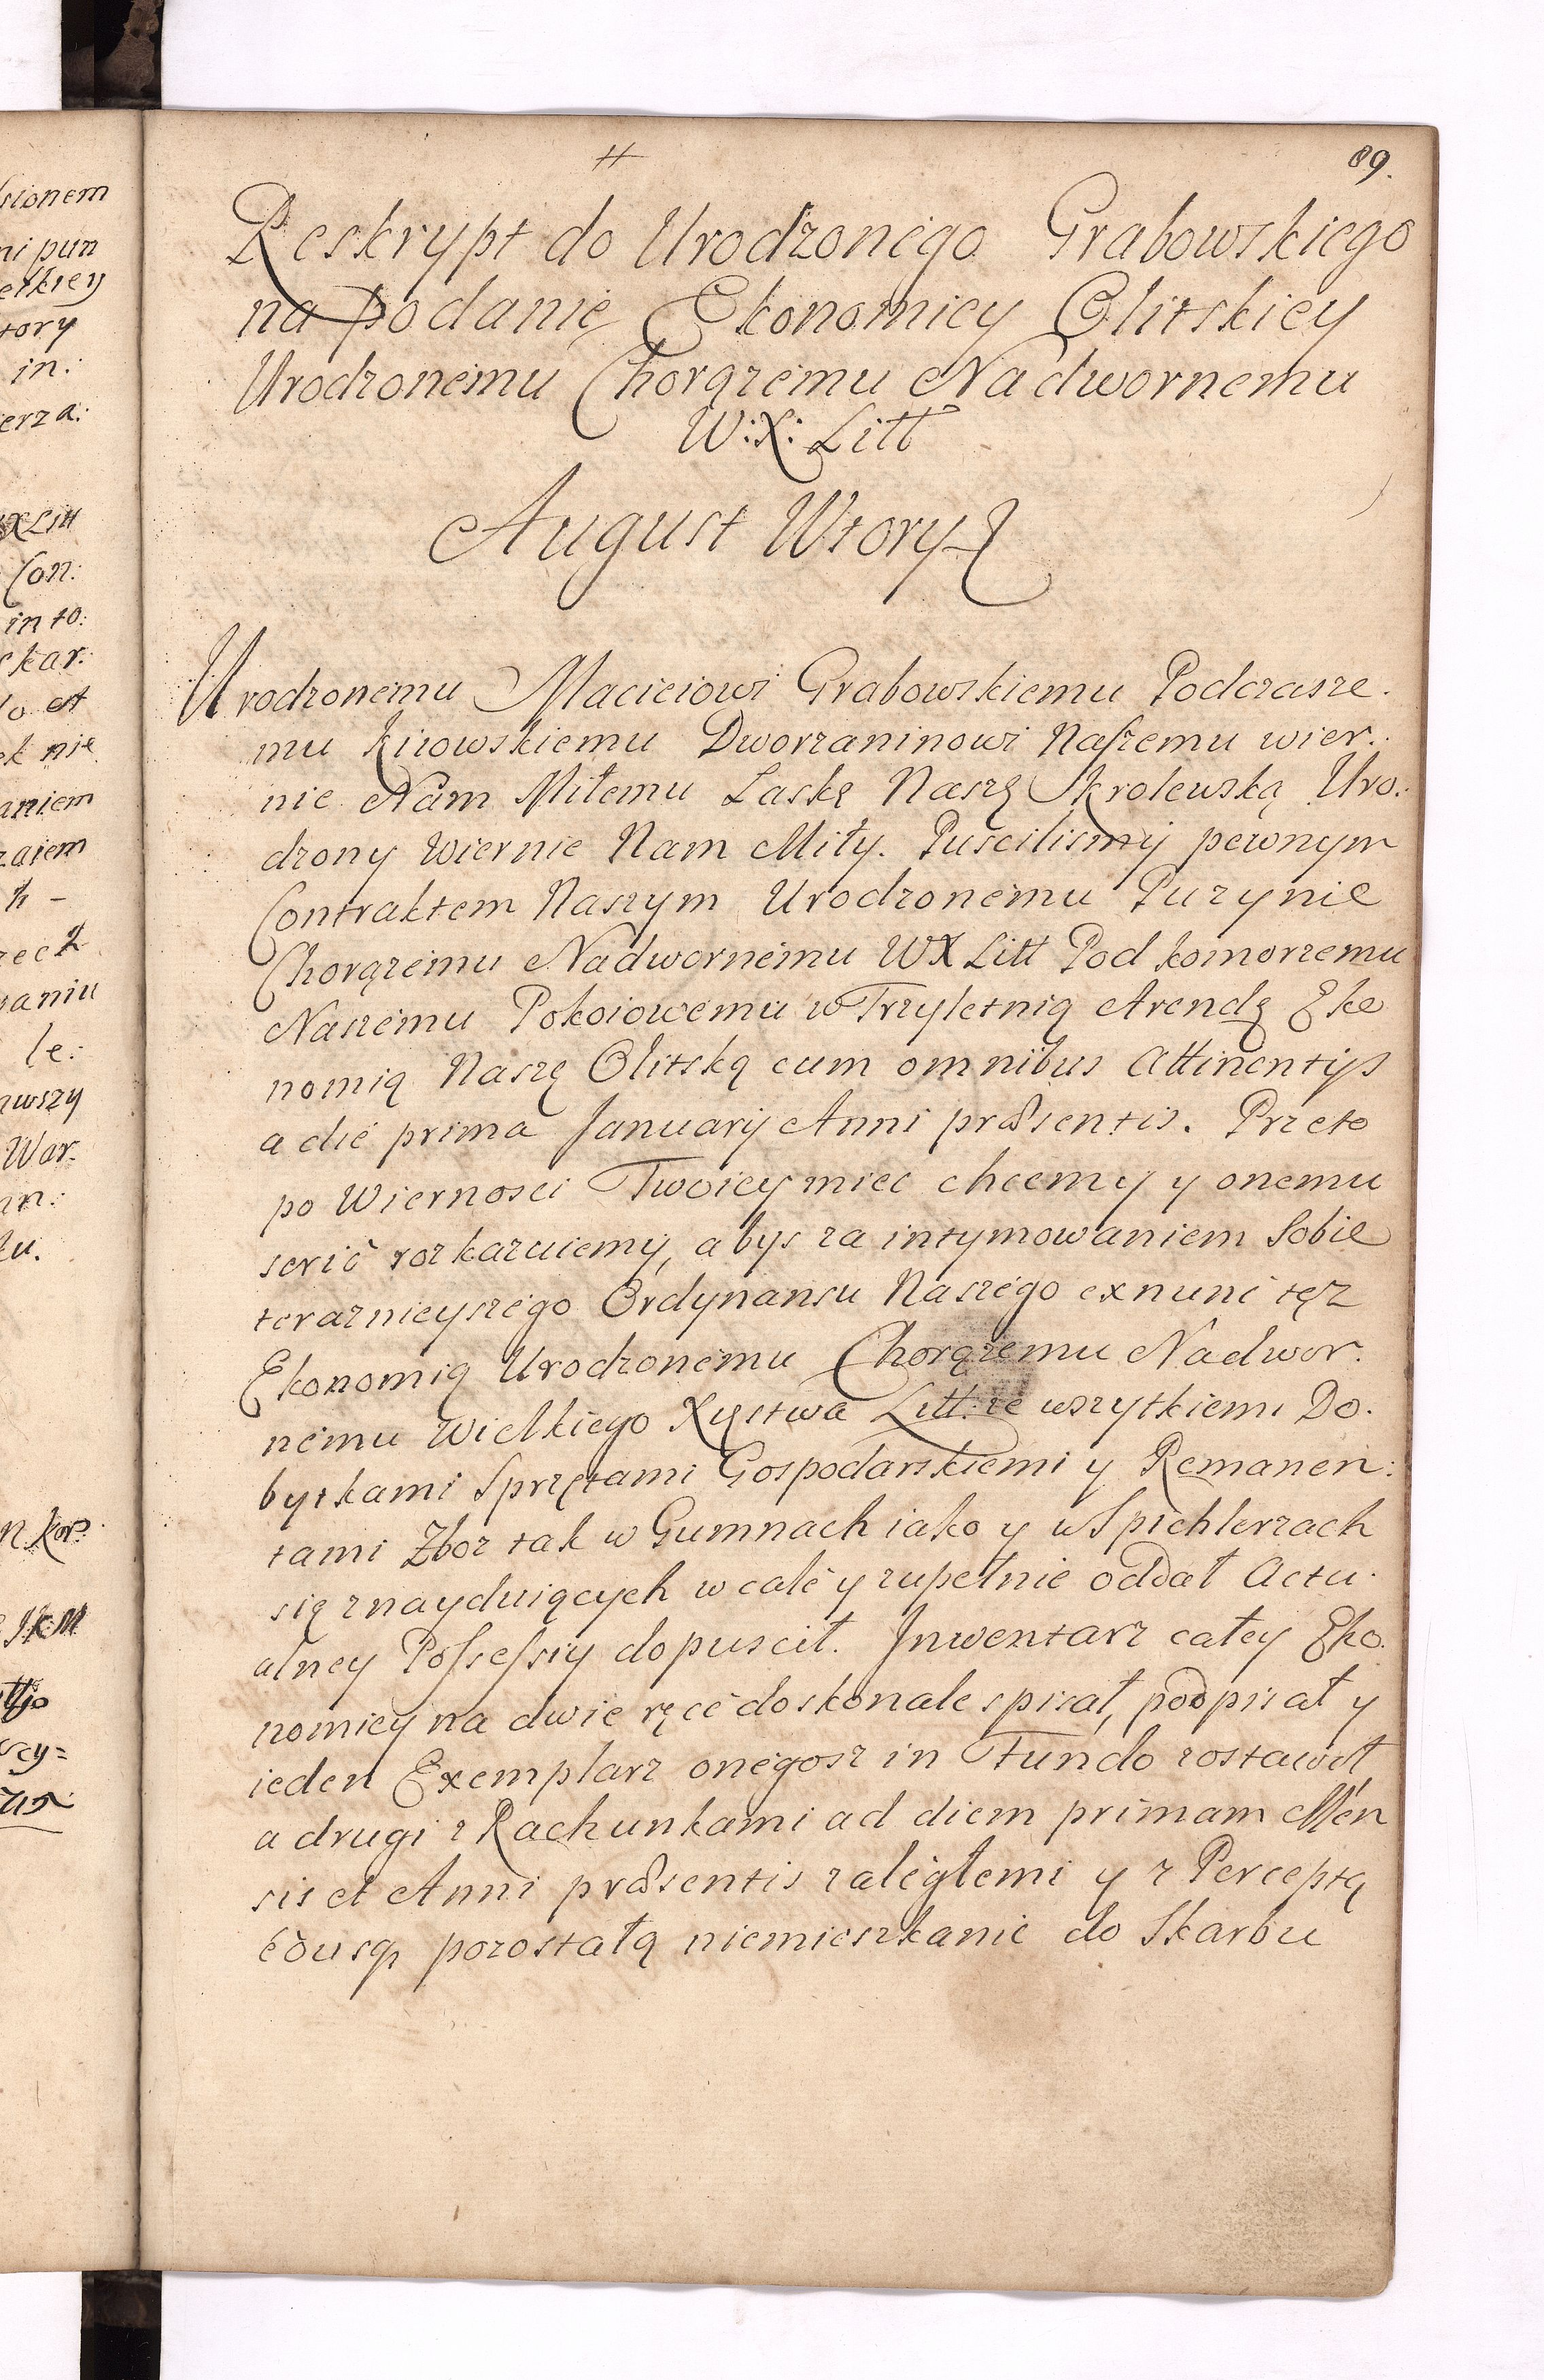 #
89.
Reskrypt do Urodzonego Grabowskiego
na podanie Ekonomiey Olitskiey
Urodzonemu Chorązemu Nadwornemu
W:X: Litt
August Wtory
Urodzonemu Macieiowi Grabowskiemu Podczasze.
mu Kiiowskiemu Dworzaninowi Naszemu wier.
nie Nam Miłemu Laskę Naszę Krolewską Uro.
dzony Wiernie Nam Miły. Puscilismy pewnym
Contraktem Naszym Urodzonemu Puzynie
Chorązemu Nadwornemu WX Litt Pod komorzemu
Naszemu Pokoiowemu w Trzyletnią Arendę Eko
nomią Naszę Olitską cum omnibus Attinentijs
a die prima Januarij Anni præsentis. Przeto
po Wiernosci Twoiey miec chcemy y onemu
serio rozkazuiemy, abys za intymowaniem Sobie
teraznieyszego Ordynansu Naszego exnunc tęz
Ekonomią Urodzonemu Chorązemu Nadwor.
nemu Wielkiego Xięstwa Litt: ze wszytkiemi Do.
bytkami Sprzętami Gospodarskiemi y Remanen:
tami Zboz tak w Gumnach iako y w Spichlerzach
się znayduiących w cale y zupełnie oddał Actu.
alney Possessiy dopuscił. Inwentarz całey Eko.
nomiey na dwie ręce doskonale spisał, podpisał y
ieden Exemplarz onegosz in Fundo zostawił
a drugi z Rachunkami ad diem primam Men
sis et Anni præsentis zaległemi y z Perceptą
eousq pozostałą niemieszkanie do Skarbu
sionem
ni pun
elkiey
tory
in:
erza:
XLitt
Con:
in to:
skar:
et
ek nie
aniem
zaiem
h -
rzecz
waniu
le:
wszy
War.
an:
ku.
n kor:
JKM
cy=